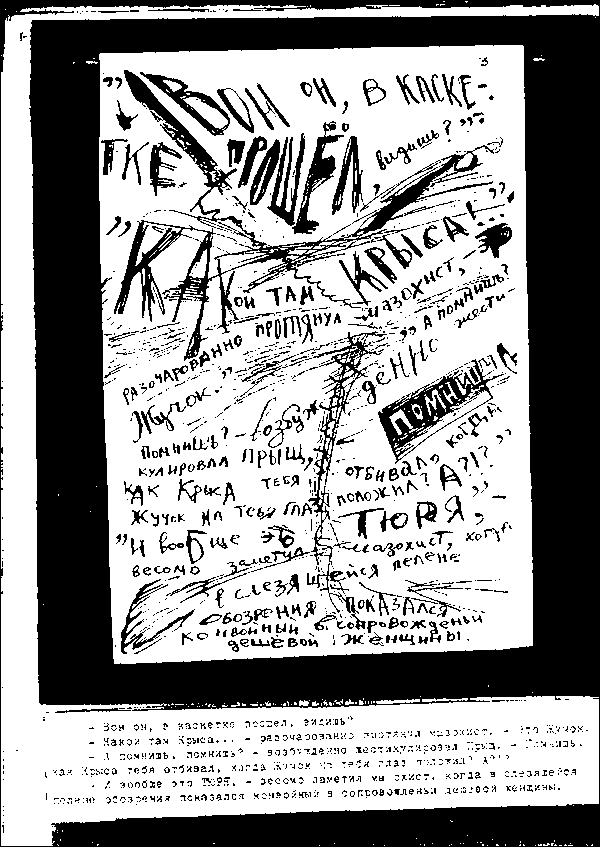 3
„ВОН ОН, В КАСКЕ-
ТКЕ ПРОШЁЛ, видишь?”
„КАКОЙ ТАМ КРЫСА!..”
РАЗОЧАРОВАННО ПРОТЯНУЛ мазохист, -
Жучок.” „А ПОМНИШЬ?
ПОМНИШЬ? - возбужденно жести
кулировал ПРЫЩ, ПОМНИШЬ,
КАК КРЫСА ТЕБЯ ОТБИВАЛ, КОГДА
Жучок на тебя глаз ПОЛОЖИЛ? А?!?”
„И вообще это ТЮРЯ,” -
весомо заметил мазохист, когда
в слезящейся пелене
обозрения ПОКАЗАЛСЯ
конвойный в сопровожденьи
дешёвой женщины.
- Вон он, в каскетке прошел, видишь?
- Какой там Крыса... - разочарованно протянул мазохист. - Это Жучок.
- А помнишь, помнишь? - возбужденно жестикулировал Прыщ. - Помнишь,
как Крыса тебя отбивал, когда Жучок на тебя глаз положил? А?!?
- И вообще это ТЮРЯ, - весомо заметил мазохист, когда в слезящейся
пелене обозрения показался конвойный в сопровожденьи дешевой женщины.